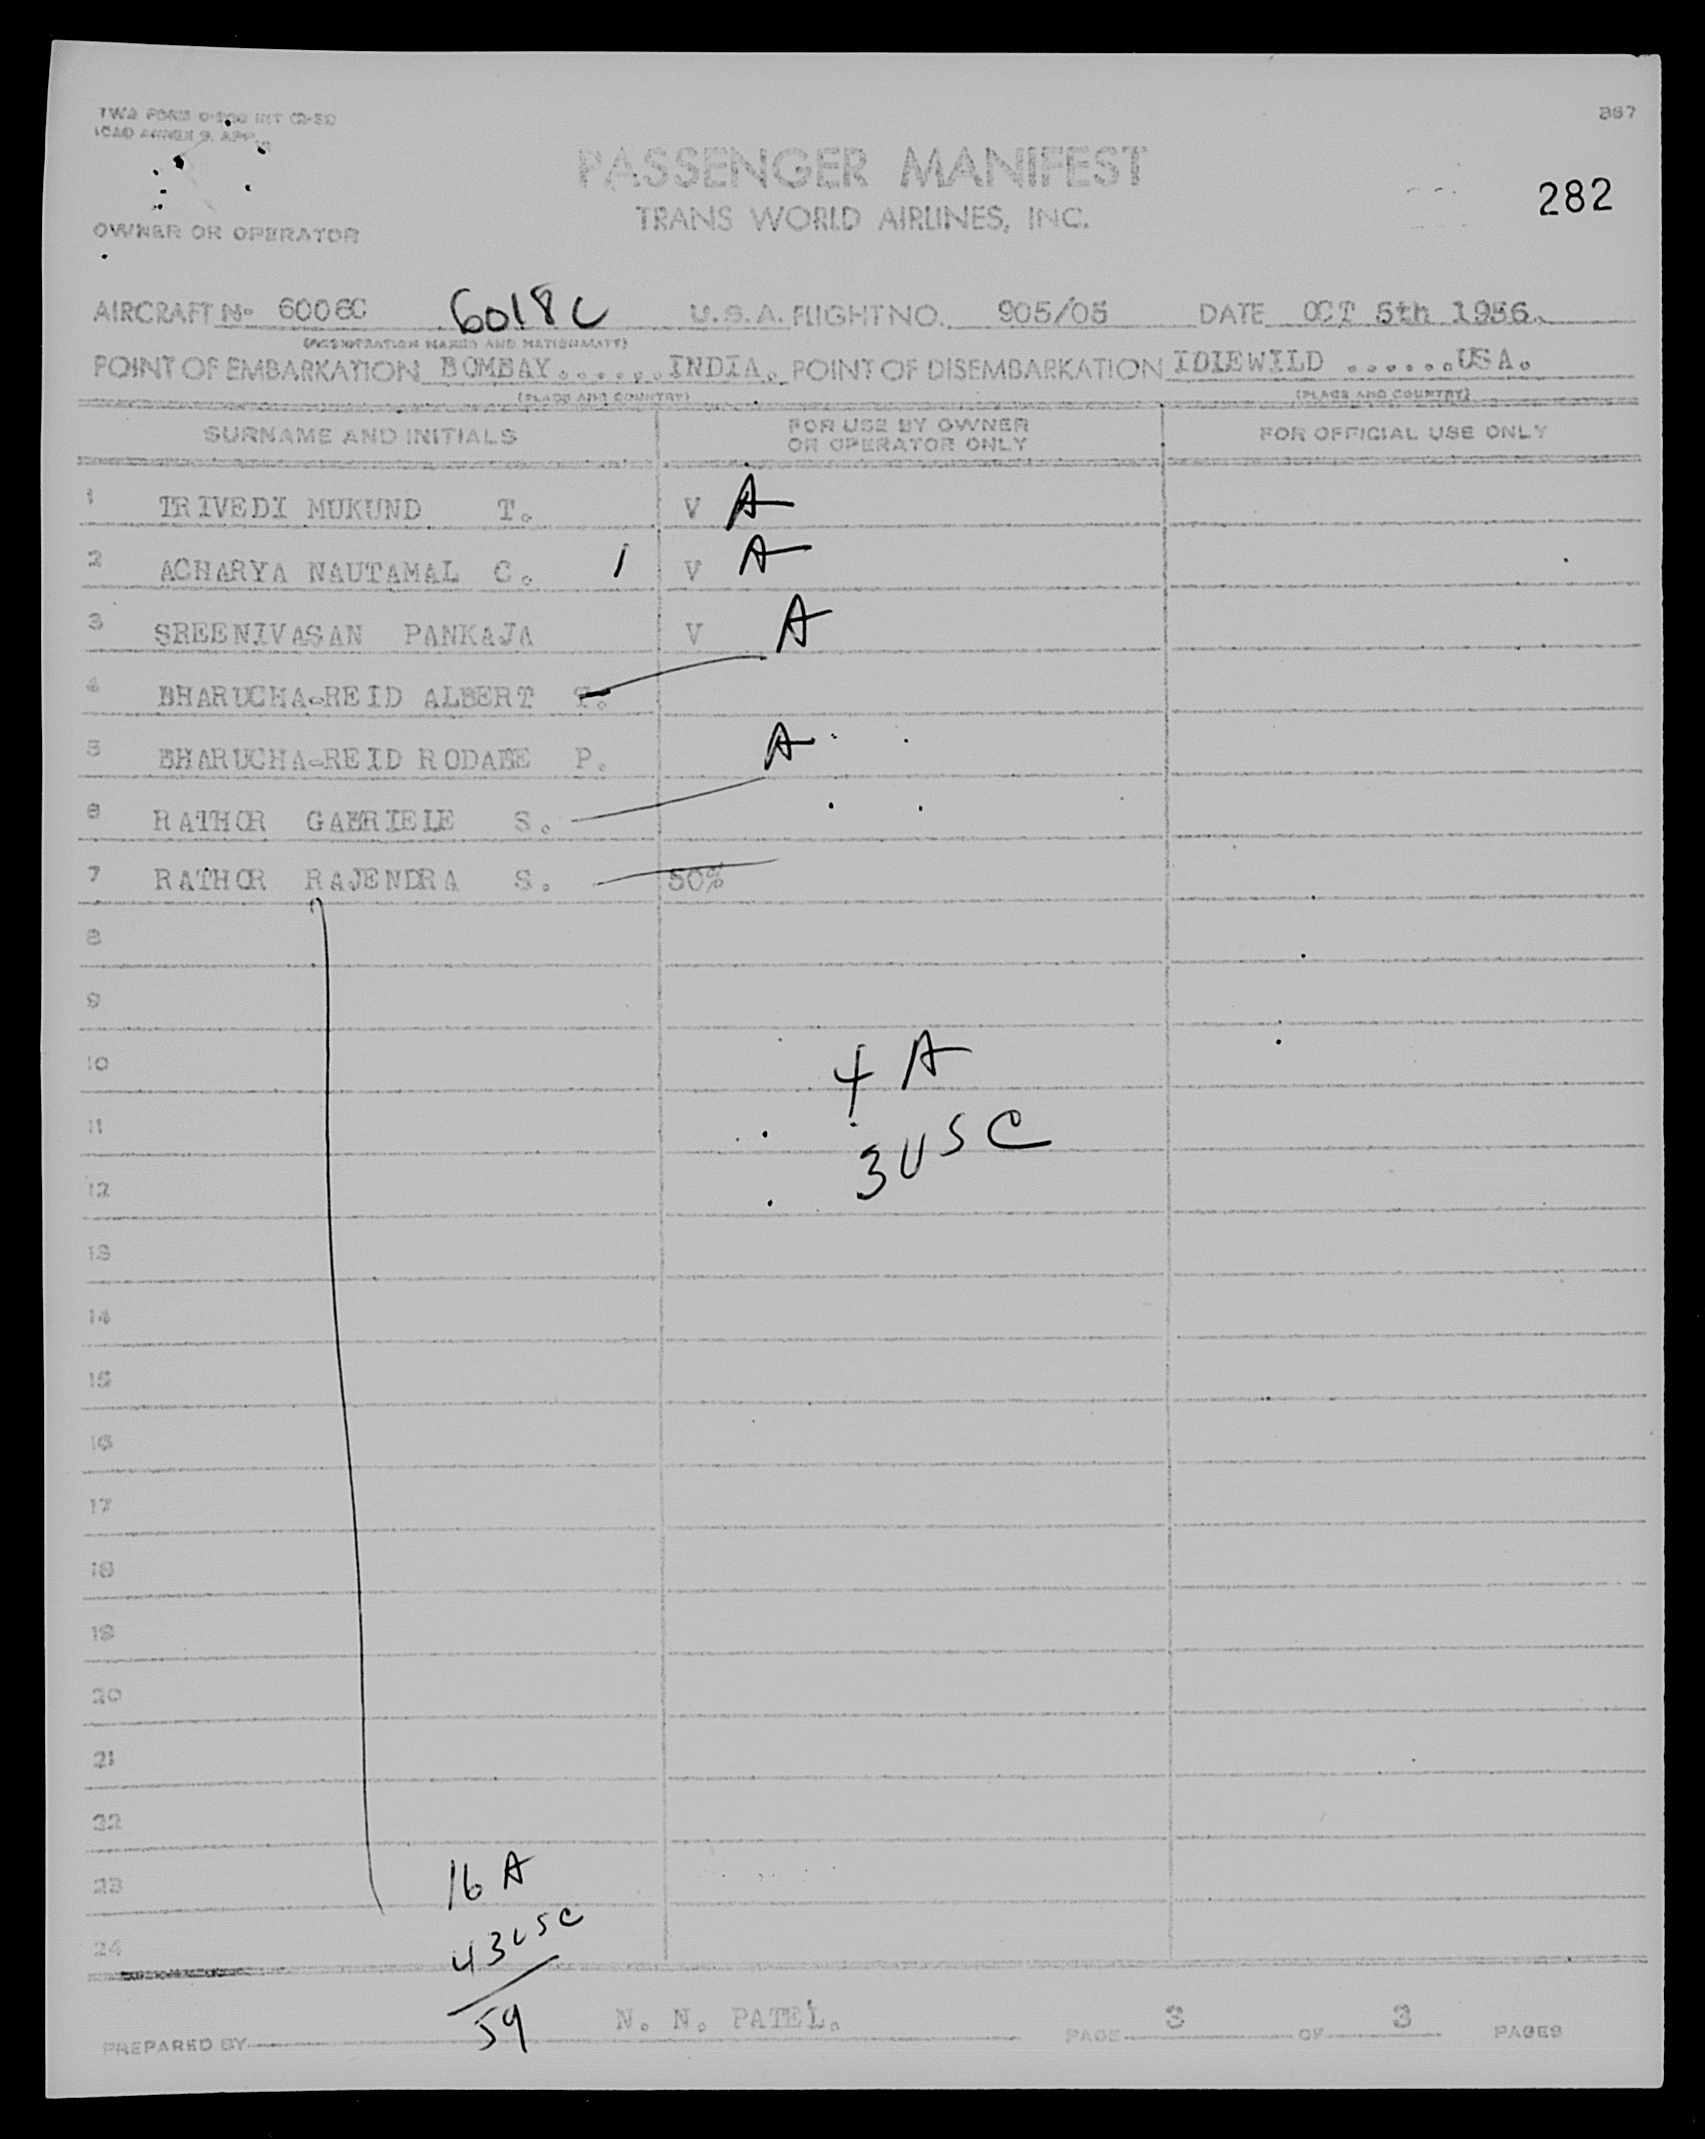 TWA FORM
ICAO ANNEX 9, APP.
267
PASSENGER MANIFEST
282
TRANS WORLD AIRLINES, INC.
OWNER OR OPERATOR
AIRCRAFT No 6006C 6018C U.S.A. FLIGHT NO. 905/05 DATE OCT 5th 1956.
(REGISTRATION MARKS AND NATIONALITY)
POINT OF EMBARKATION BOMBAY......INDIA. POINT OF DISEMBARKATION IDLEWILD ......USA.
(PLACE AND COUNTRY) (PLACE AND COUNTRY)
SURNAME AND INITIALS FOR USE BY OWNER OR OPERATOR ONLY FOR OFFICIAL USE ONLY
1 TRIVEDI MUKUND T. V A
2 ACHARYA NAUTAMAL C. 1 V A
3 SREENIVASAN PANKAJA V A
4 BHARUCHA-REID ALBERT T.
5 BHARUCHA-REID RODABE P. A
6 RATHOR GABRIELE S.
7 RATHOR RAJENDRA S. 50%
8
9
10 4 A
11 3 USC
12
13
14
15
16
17
18
19
20
21
22
23 16 A
24 43 USC
59
PREPARED BY N. N. PATEL. PAGE 3 OF 3 PAGES